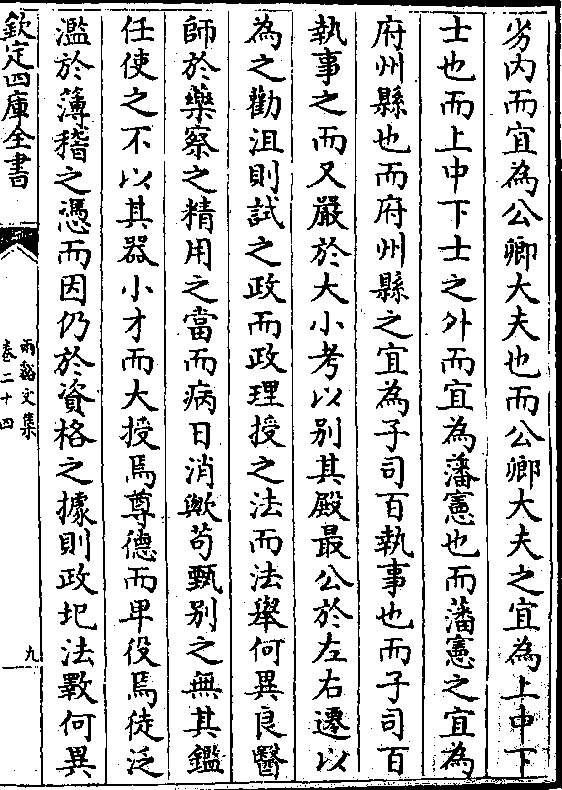 劣内而宜為公卿大夫也而公卿大夫之宜為上中下
士也而上中下士之外而宜為藩憲也而藩憲之宜為
府州縣也而府州縣之宜為子司百執事也而子司百
執事之而又嚴於大小考以别其殿最公於左右遷以
為之勸沮則試之政而政理授之法而法舉何異良醫
師於藥察之精用之當而病日消歟苟甄别之無其鑑
任使之不以其器小才而大授焉尊德而卑役焉徒泛
濫於薄稽之憑而因仍於資格之據則政圮法斁何異
欽定四庫全書
兩谿文集
卷二十四
九